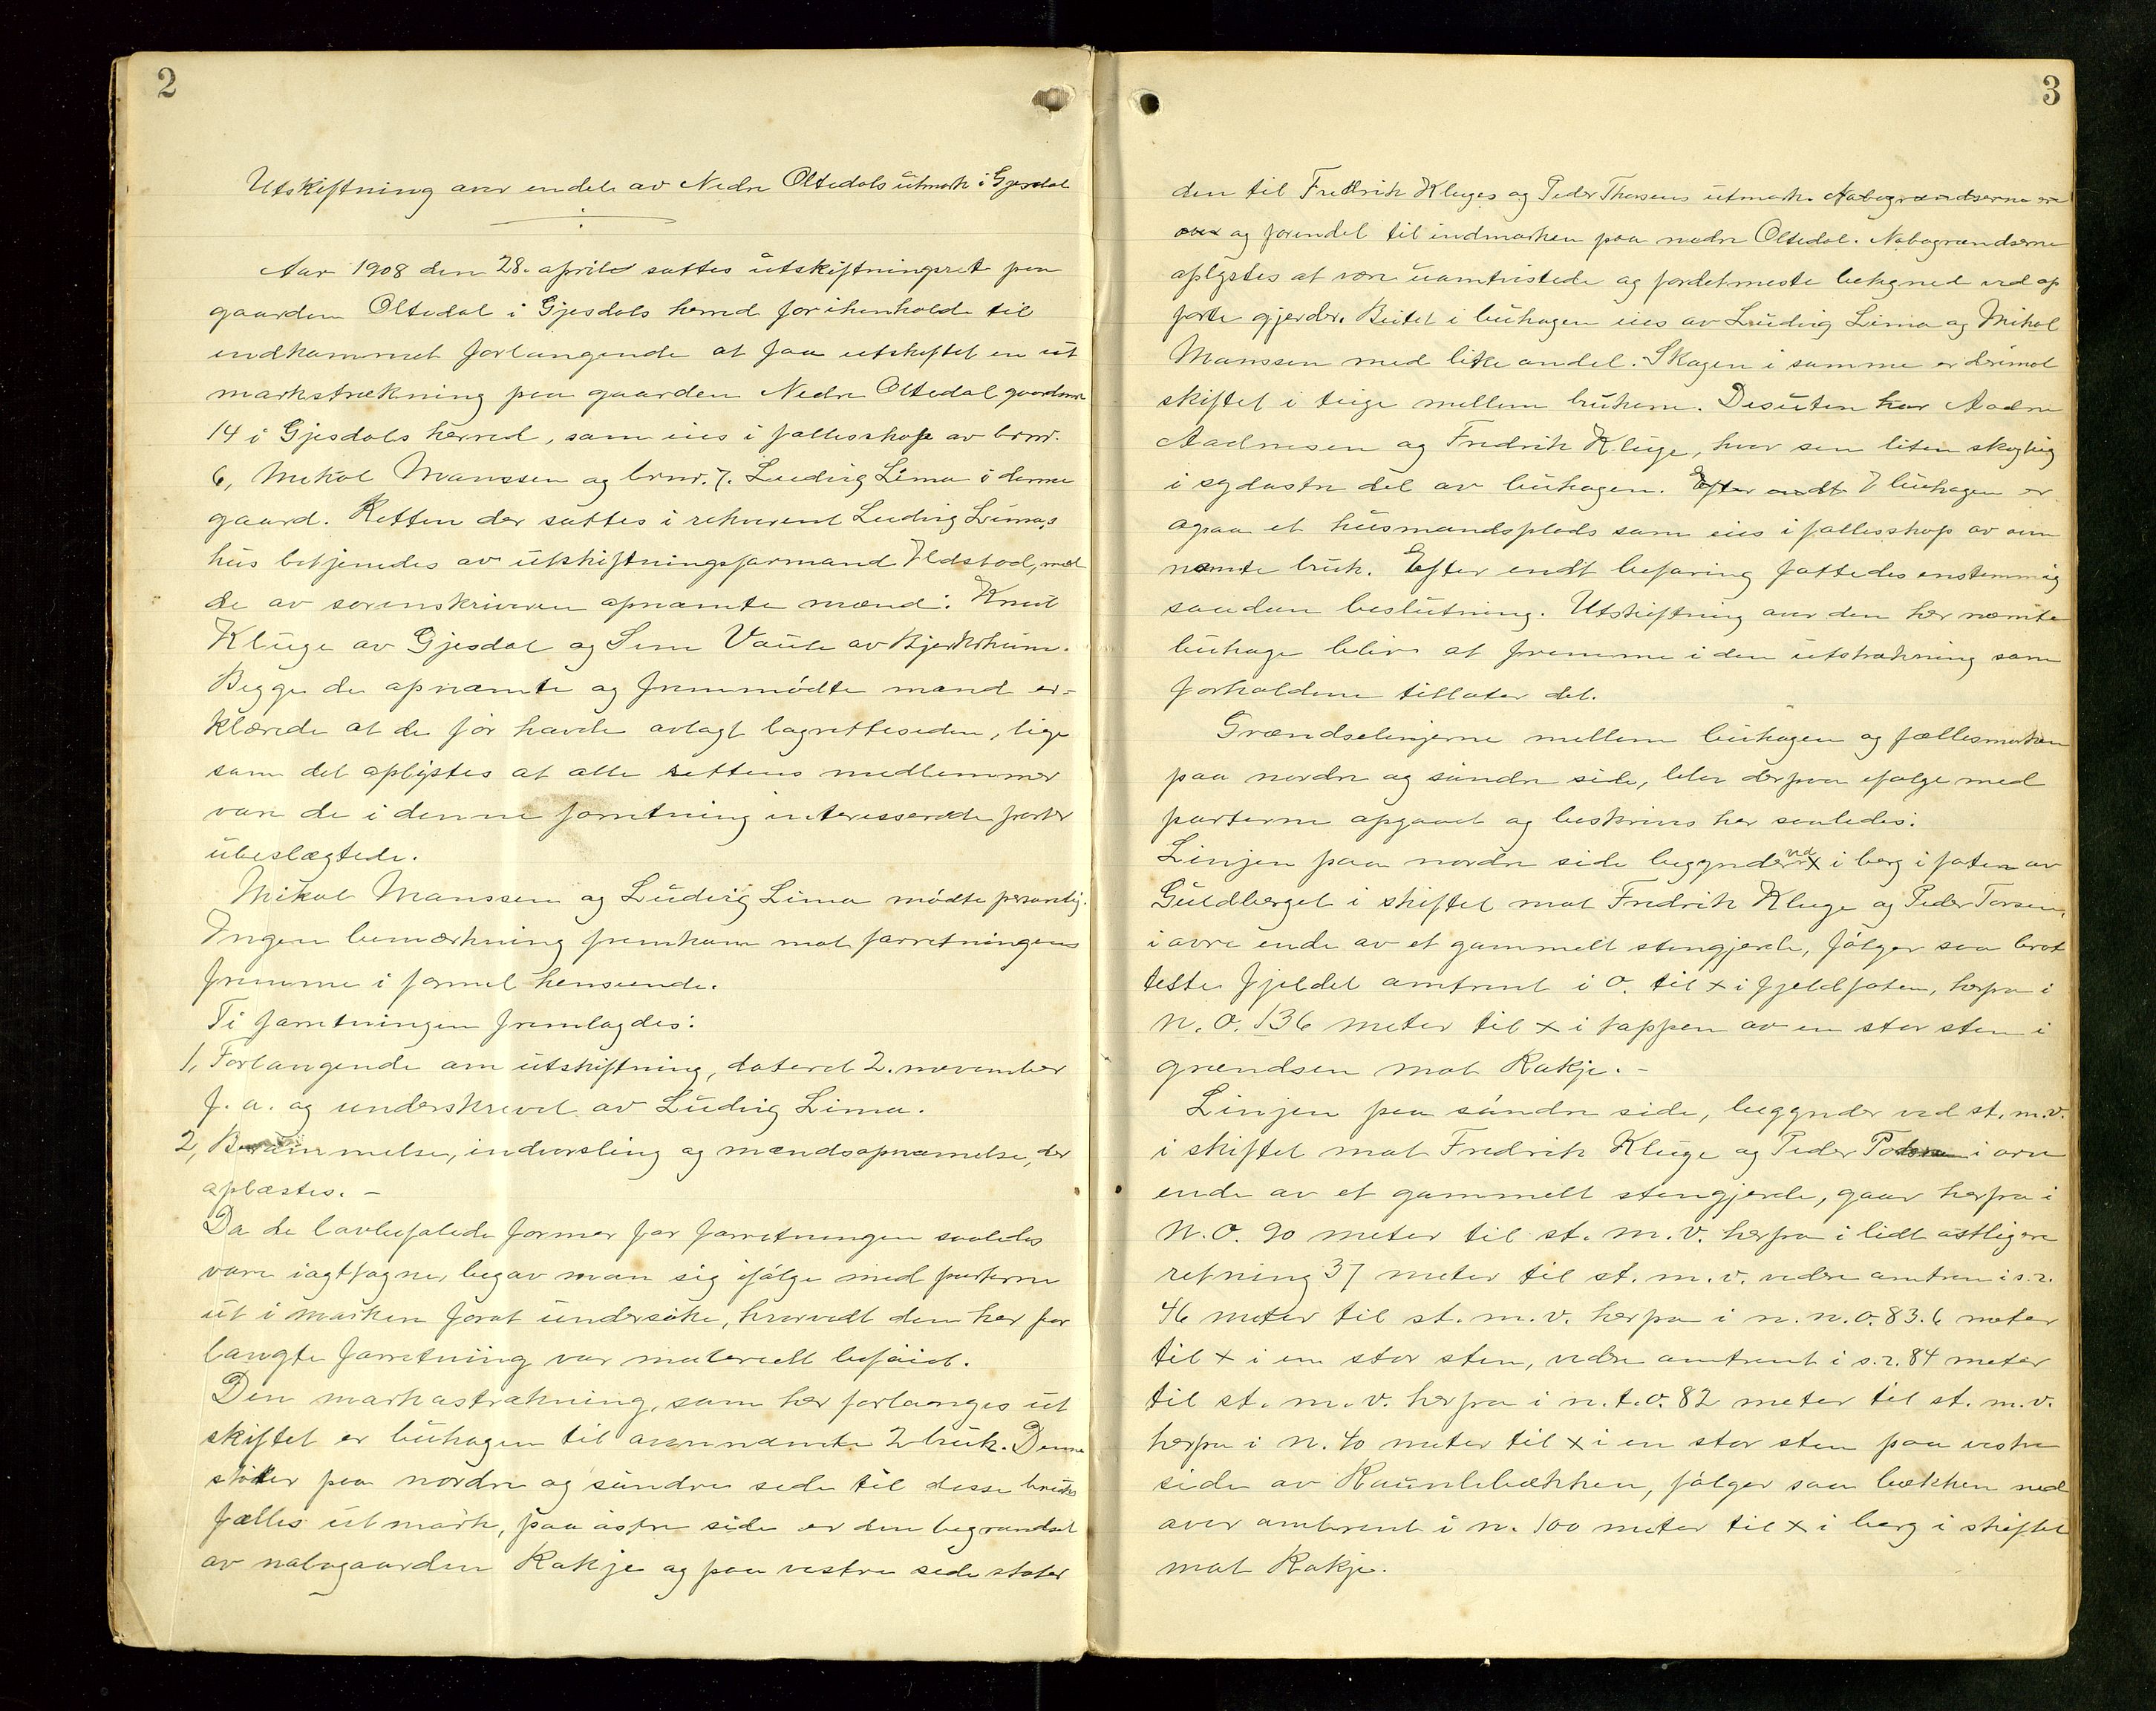 2
Utskiftning over endel av Nedre Oltedals utmark i Gjesdal
Aar 1908 den 28. april sattes utskiftningsret paa
gaarden Oltedal i Gjesdals herred for ihenhold til
indkommet forlangende at faa utskiftet en ut
markstrækning paa gaarden Nedre Oltedal gaardsnr
14 i Gjesdals herred, som eies i fællesskap av brnr.
6, Mikal Manssen og brnr. 7. Ludvig Lima i denne
gaard. Retten der sattes i rekvirent Ludvig Lima,s
hus betjenedes av utskiftningsformand Ildstad, med
de av sorenskriveren opnævnte mænd: Knut
Kluge av Gjesdal og Sem Vaule av Bjerkrheim.
Begge de opnævnte og fremmødte mænd er-
klærede at de før havde avlagt lagretteseden, lige
som det oplystes at alle rettens medlemmer
vare de i denne forretning interesserede parter
ubeslægtede.
Mikal Manssen og Ludvig Lima mødte personlig.
Ingen bemærkning fremkom mot forretningens
fremme i formel henseende.
Ti forretningen fremlagdes:
1, Forlangende om utskiftning, dateret 2. november
f. a. og underskrevet av Ludvig Lima.
2, Berammelse, indvarsling og mændsopnævnelse, der
oplæstes. -
Da de lovbefalede former for forretningen saaledes
vare iagttagne, begav man sig ifølge med parterne
ut i marken forat undersøke, hvorvidt den her for
langte forretning var materielt beføiet.
Den markastrækning, som her forlanges ut
skiftet er buhagen til ovennævnte 2 bruk. Denne
støter paa nordre og søndre side til disse bruks
fælles utmark, paa østre side er den begrændset
av nabogaarden Rakje og paa vestre side støter
3
den til Fredrik Kluges og Peder Thorsens utmark. Nabogrændserne ere
over og forendel til indmarken paa nedre Oltedal. Nabogrændserne
oplystes at være uomtvistede og fordetmeste betegned ved op
førte gjerder. Beitet i buhagen eies av Ludvig Lima og Mikal
Manssen med like andel. Skogen i samme er derimot
skiftet i teige mellem brukene. Desuten har Aadne
Aadnesen og Fredrik Kluge, hver sen liten skogteig
i sydøstre del av buhagen. Efter endt I buhagen er
ogsaa et husmandsplads som eies i fællesskap av oven
nævnte bruk. Efter endt befaring fattedes enstemmig
saadan beslutning. Utskiftning over den her nævnte
buhage blir at fremme i den utstrækning som
forholdene tillater det.
Grændselinjerne mellem buhagen og fællesmarken
paa nordre og søndre side, blev derpaa ifølge med
parterne opgaaet og beskrives her saaledes:
Linjen paa nordre side begynder ved x i berg i foten av
Guldberget i skiftet mot Fredrik Kluge og Peder Torsen,
i øvre ende av et gammelt stengjerde, følger saa brat
teste fjeldet omtrent i o. til x i fjeldfoten, herfra i
n. o. 136 meter til x i toppen av en stor sten i
grændsen mot Rakje. -
Linjen paa søndre side, begynder ved st. m. v.
i skiftet mot Fredrik Kluge og Peder i øvre
ende av et gammelt stengjerde, gaar herfra i
N. O. 90 meter til st. m. v. herfra i lidt østligere
retning 37 meter til st. m. v. videre omtren i s. r.
46 meter til st. m. v. herfra i n. n. o. 83.6 meter
til x i en stor sten, videre omtrent i s. r. 84 meter
til st. m. v. herfra i n. t. o. 82 meter til st. m. v.
herfra i N. 40 meter til x i en stor sten paa vestre
side av Raunlibækken, følger saa bækken ned
over omtrent i n. 100 meter til x i berg i skiftet
mot Rakje.